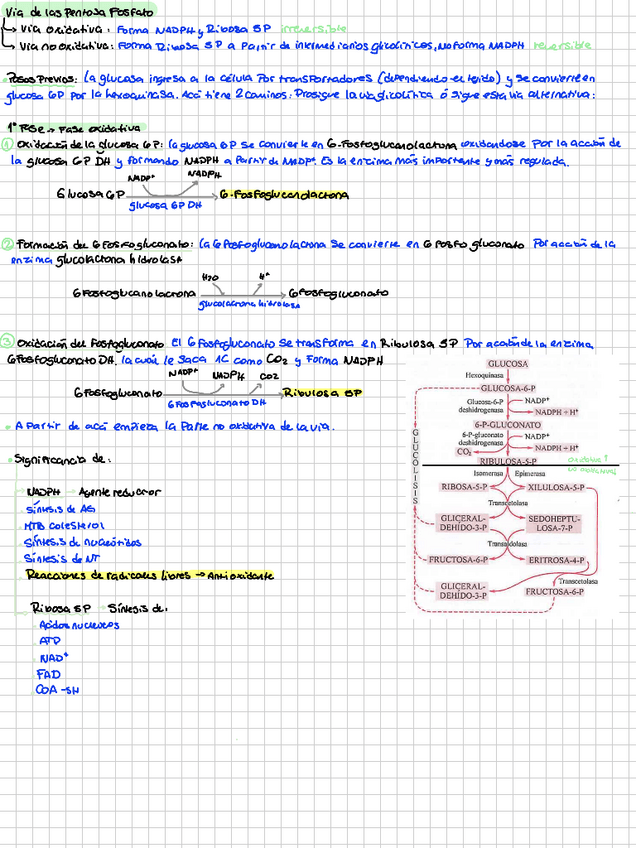 Via de las Pentosa Fosfato
→ Via oxidativa: Forma NADPH y Ribosa 5P irreversible
→ Via no oxidativa: Forma Ribosa 5P a partir de intermediarios glicolíticos, no forma NADPH reversible
• Pasos Previos: La glucosa ingresa a la célula por transportadores (dependiendo el tejido) y se convierte en
glucosa 6P por la hexoquinasa. Acá tiene 2 caminos: Prosigue la via glicolítica ó sigue esta via alternativa:
1° FASE → Fase oxidativa
① Oxidación de la glucosa 6P: la glucosa 6P se convierte en 6-Fosfoglucanolactona oxidandose por la acción de
la glucosa 6P DH y formando NADPH a partir de NADP+. Es la enzima más importante y más regulada.
NADP+ NADPH
Glucosa 6P → 6-Fosfoglucanolactona
glucosa 6P DH
② Formación de 6 Fosfogluconato: la 6 Fosfoglucanolactona se convierte en 6 Fosfo gluconato por acción de la
enzima glucolactona hidrolasa
H2O H+
6 Fosfoglucanolactona → 6 Fosfogluconato
glucolactona hidrolasa
③ Oxidación del Fosfogluconato El 6 Fosfogluconato se transforma en Ribulosa 5P por acción de la enzima
6 Fosfogluconato DH. la cual le saca 1C como CO2 y forma NADPH
NADP+ NADPH CO2
6 Fosfogluconato → Ribulosa 5P
6 Fosfogluconato DH
• A partir de acá empieza la parte no oxidativa de la via.
• Significancia de:
NADPH → Agente reductor
Síntesis de AG
Colesterol
Síntesis de nucleótidos
Síntesis de NT
Reacciones de radicales libres → Antioxidante
Ribosa 5P → Síntesis de:
Acidos nucleicos
ATP
NAD+
FAD
COA-SH
GLUCOSA
Hexoquinasa
GLUCOSA-6-P
Glucosa-6-P
deshidrogenasa
NADP+
NADPH + H+
6-P-GLUCONATO
6-P-gluconato
deshidrogenasa
NADP+
NADPH + H+
CO2
RIBULOSA-5-P
oxidativa ↑
no oxidativa ↓
Isomerasa Epimerasa
RIBOSA-5-P XILULOSA-5-P
Transcetolasa
GLICERAL-
DEHÍDO-3-P
SEDOHEPTU-
LOSA-7-P
Transaldolasa
FRUCTOSA-6-P ERITROSA-4-P
Transcetolasa
GLICERAL-
DEHÍDO-3-P
FRUCTOSA-6-P
GLUCÓLISIS